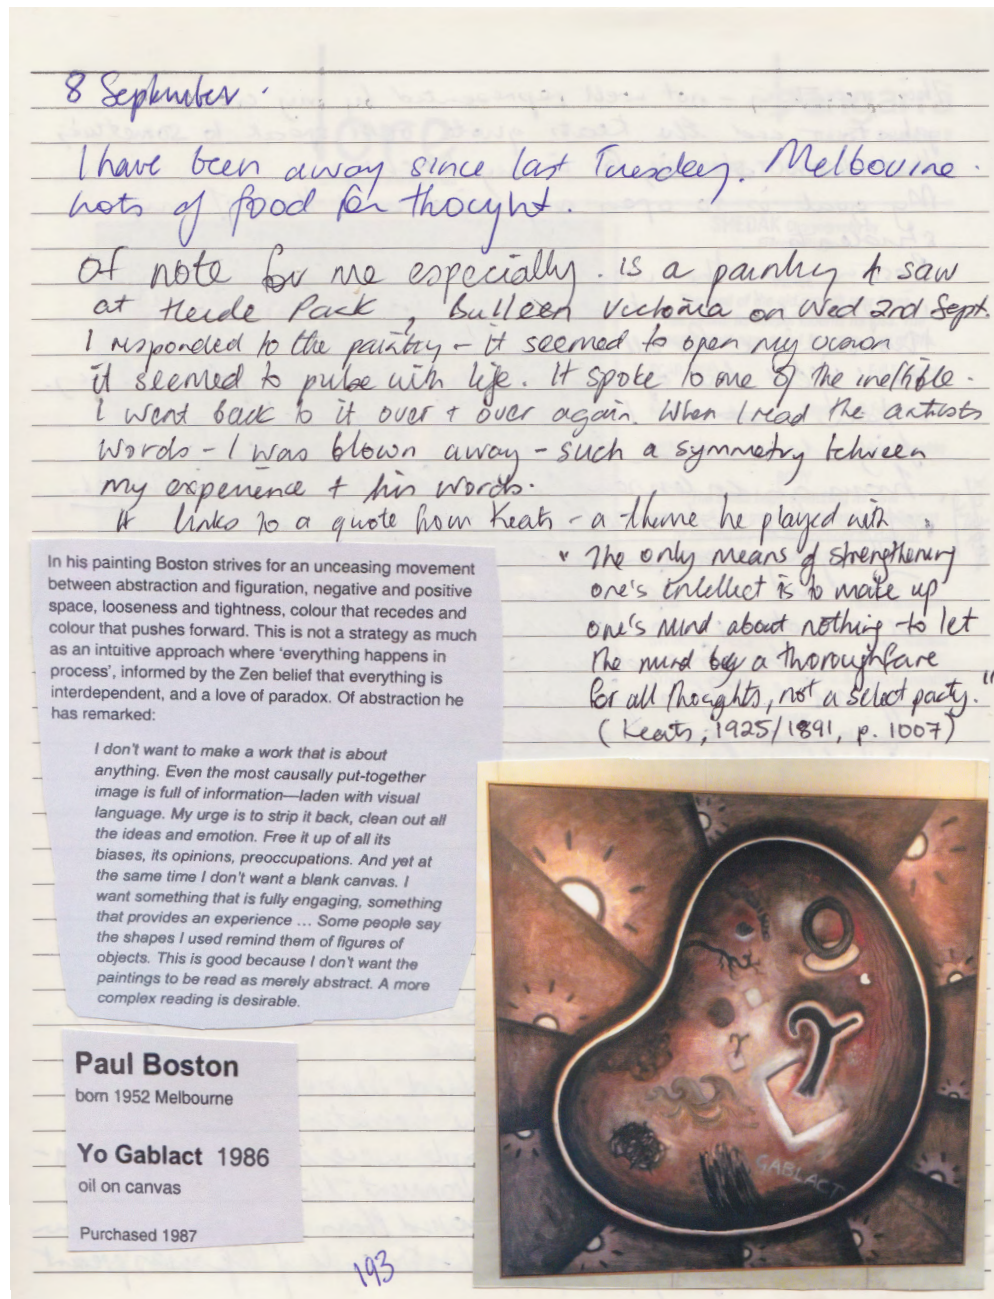 8 September.
I have been away since last Tuesday. Melbourne.
Lots of food for thought.
Of note for me especially. is a painting I saw
at Heide Park, Bulleen Victoria on Wed 2nd Sept.
I responded to the painting – it seemed to open my
it seemed to pulse with life. It spoke to me of the ineffible.
I went back to it over + over again. When I read the artists
words – I was blown away – such a symmetry between
my experience + his words.
It links to a quote from Keats – a theme he played with
" The only means of strengthening
one's intellect is to make up
one's mind about nothing – to let
the mind be a thoroughfare
for all thoughts, not a select party."
(Keats, 1925/1891, p. 1007)
In his painting Boston strives for an unceasing movement
between abstraction and figuration, negative and positive
space, looseness and tightness, colour that recedes and
colour that pushes forward. This is not a strategy as much
as an intuitive approach where 'everything happens in
process', informed by the Zen belief that everything is
interdependent, and a love of paradox. Of abstraction he
has remarked:
I don't want to make a work that is about
anything. Even the most causally put-together
image is full of information—laden with visual
language. My urge is to strip it back, clean out all
the ideas and emotion. Free it up of all its
biases, its opinions, preoccupations. And yet at
the same time I don't want a blank canvas. I
want something that is fully engaging, something
that provides an experience ... Some people say
the shapes I used remind them of figures of
objects. This is good because I don't want the
paintings to be read as merely abstract. A more
complex reading is desirable.
Paul Boston
born 1952 Melbourne
Yo Gablact 1986
oil on canvas
Purchased 1987
GABLACT
193